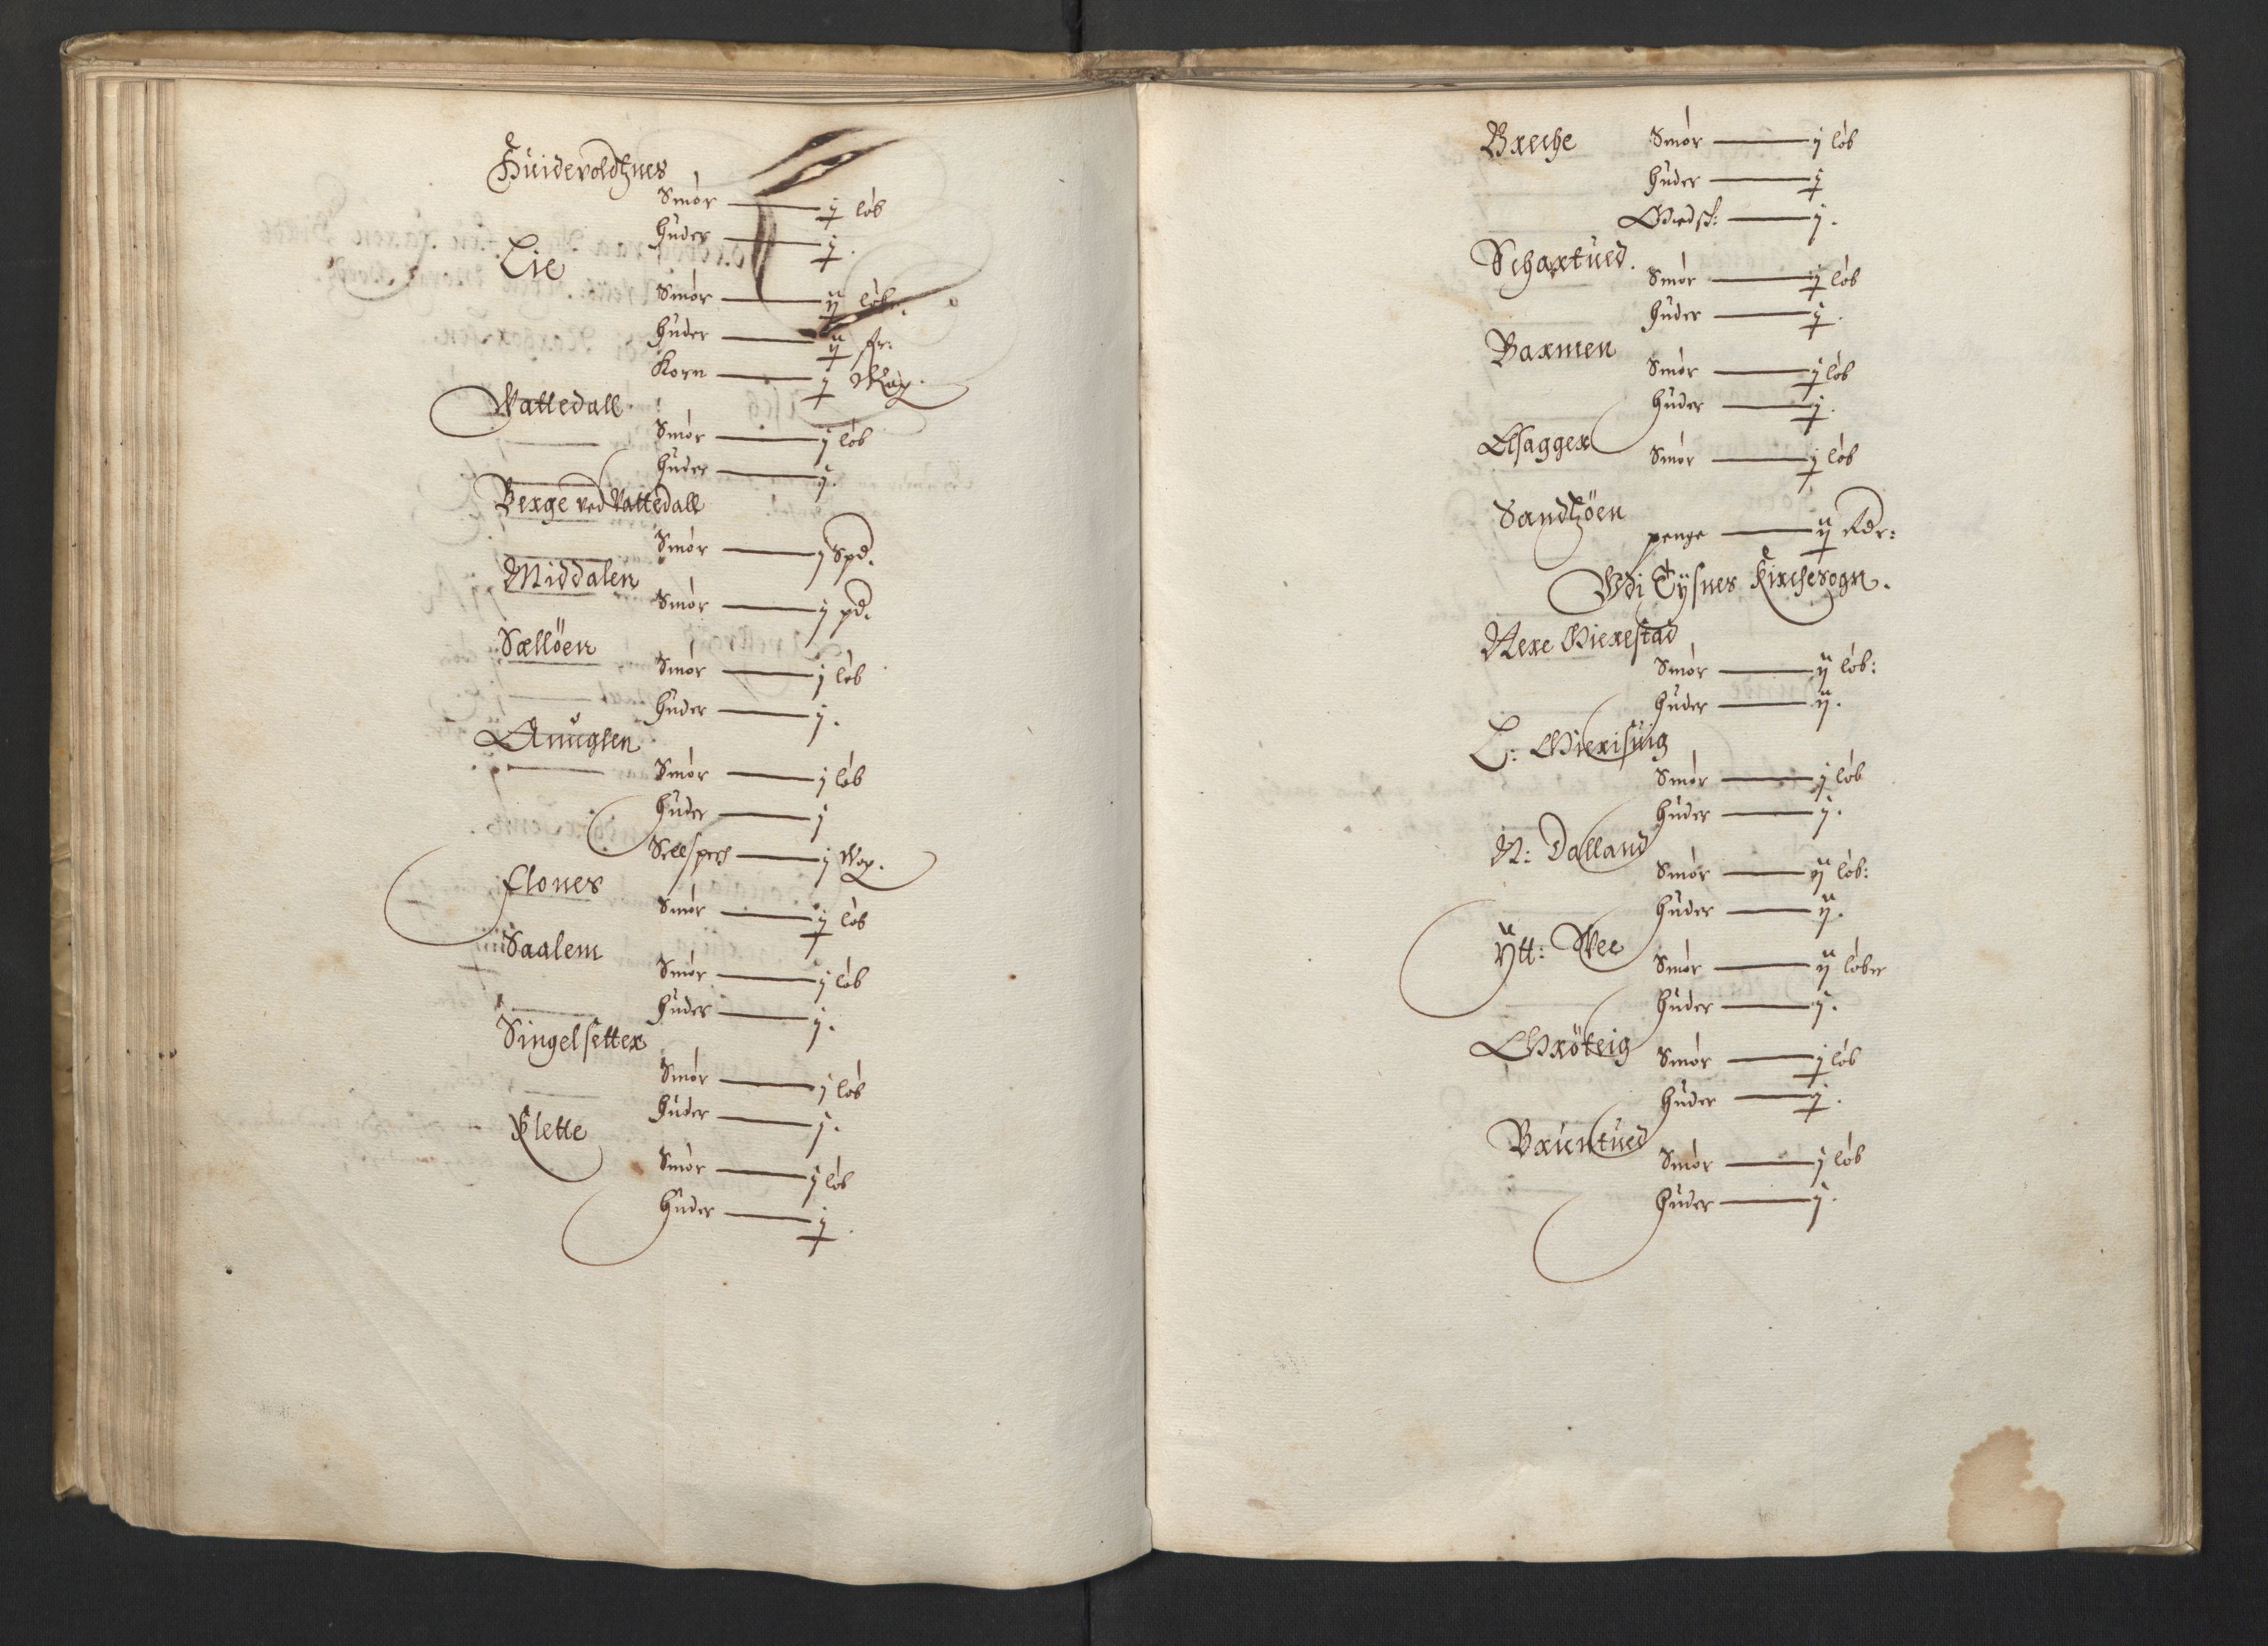 Huidevoldtznes
Smör — j löb
Huder — j.
Lie
Smör — ij löber
Huder — ij
Korn — j Wog.
Vattedall
Smör — j löb
Huder — j.
Berge ved Vattedall
Smör — j Spd.
Middalen
Smör — j pd.
Sællöen
Smör — j löb
Huder — j.
Anuglen
Smör — j löb
Huder — j
j Wog.
Flones
Smör — j löb
Saalem
Smör — j löb
Huder — j.
Singelsetter
Smör — j löb
Huder — j.
Klette
Smör — j löb
Huder — j.
Breche Smör — j löb
Huder — j
Giedsk: — j.
Schartued.
Smör — j löb
Huder — j.
Barmen
Smör — j löb
Huder — j.
Elsagger Smör — j löb
Sandtzöen
penge — ij Rdr:
Vdi Tÿsnes Kirchesogn.
Nere Gierestad
Smör — ij löb:
Huder — ij.
L: Gierisuig
Smör — j löb
Huder — j.
N: Dalland
Smör — ij löb:
Huder — ij.
Ÿtt: Wee
Smör — ij löber
Huder — j.
Gröteig Smör — j löb
Huder — j.
Bruntued
Smör — j löb
Huder — j.